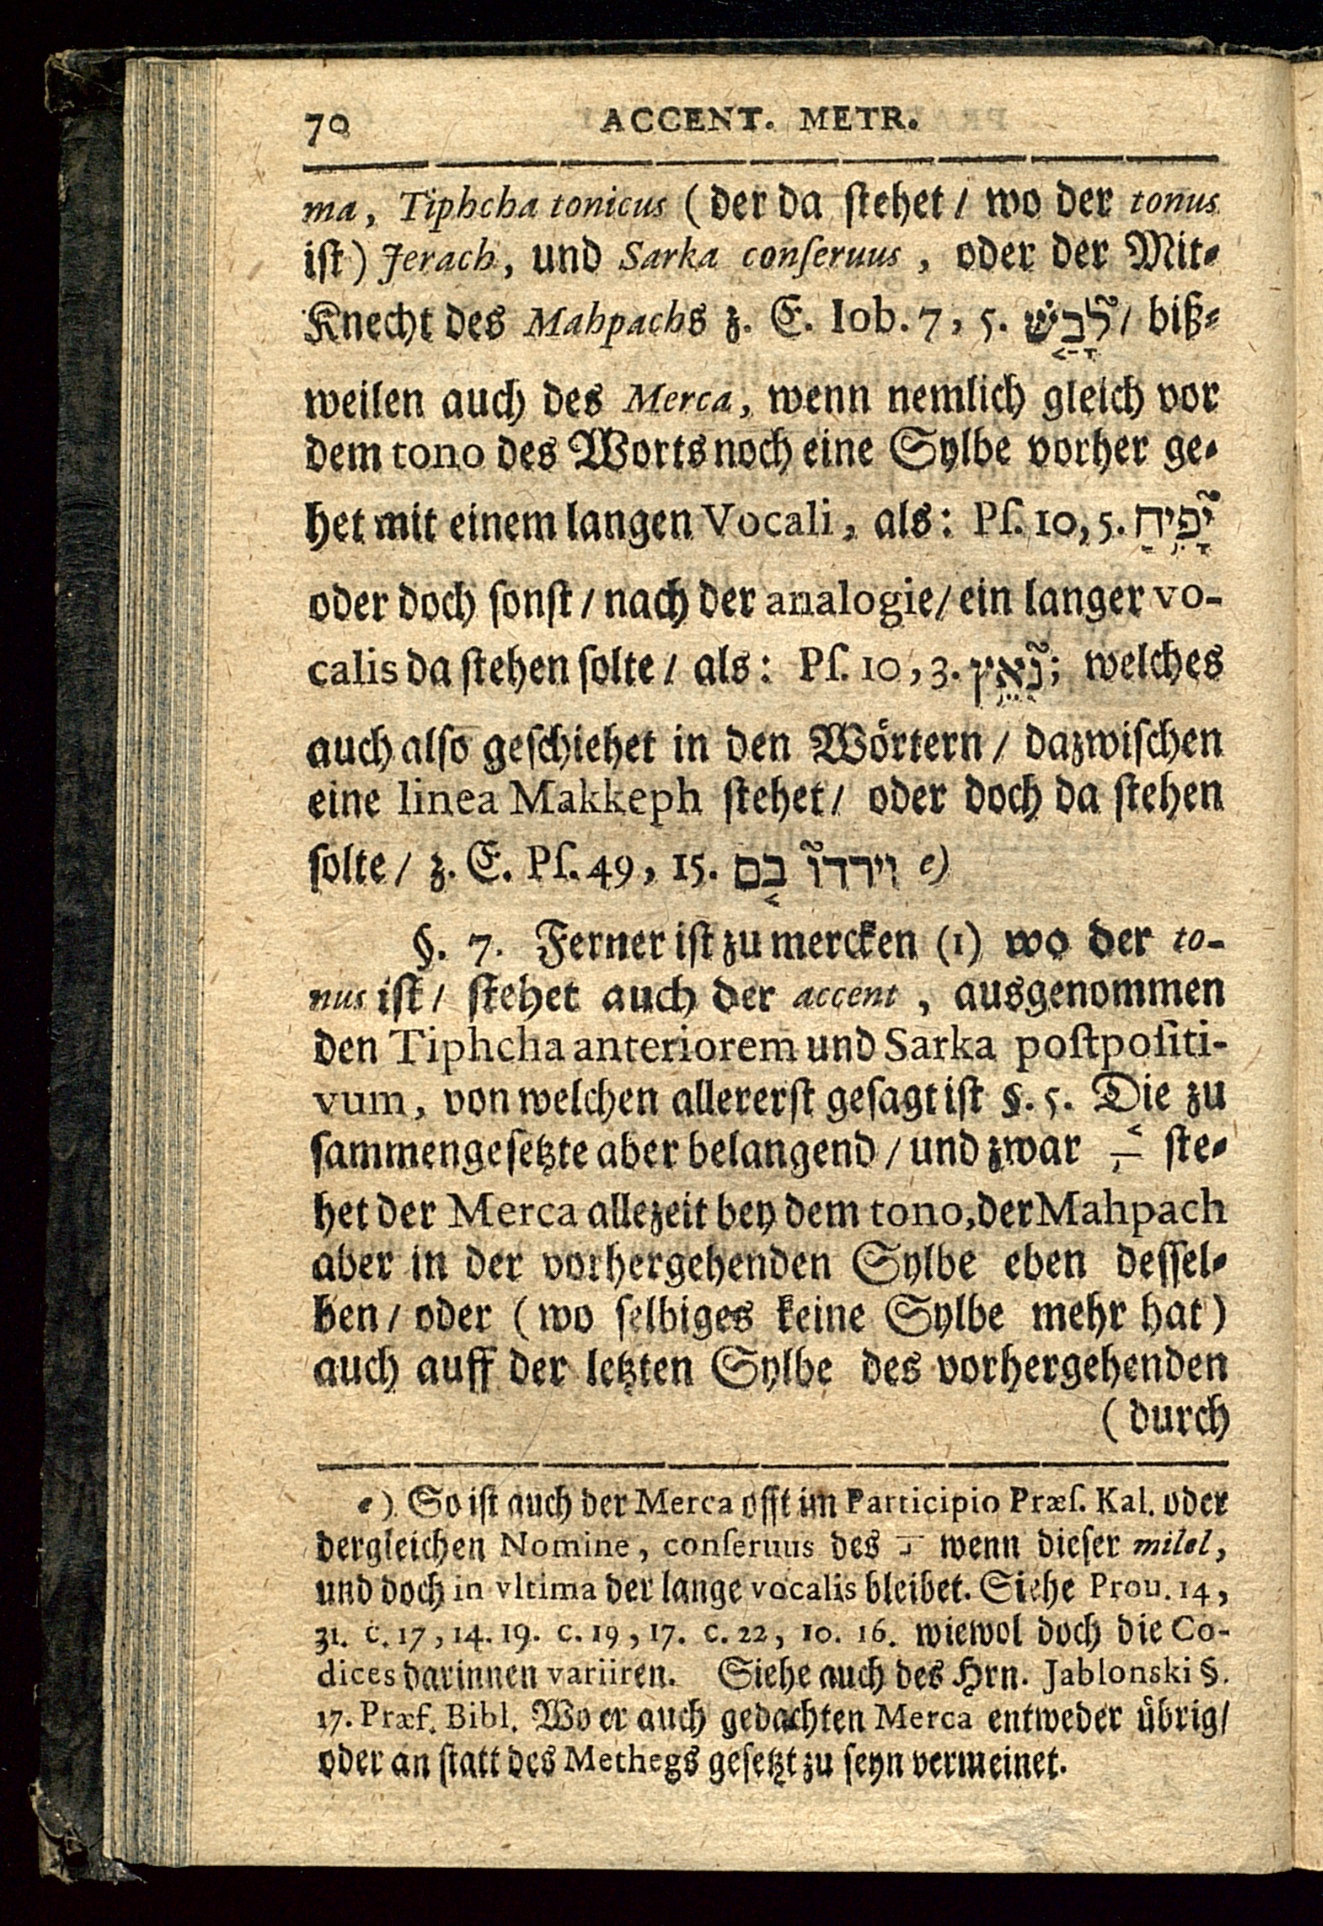 70 ACCENT. METR.
ma, Tiphcha tonicus (der da ſtehet / wo der tonus
iſt) Jerach, und Sarka conſeruus, oder der Mit⸗
Knecht des Mahpachs z. E. Iob. 7, 5. לָ֘בַ֤שׁ / biß⸗
weilen auch des Merca, wenn nemlich gleich vor
dem tono des Worts noch eine Sylbe vorher ge⸗
het mit einem langen Vocali, als: Pſ. 10, 5. יָ֘פִ֥יחַ
oder doch ſonſt / nach der analogie / ein langer vo-
calis da ſtehen ſolte / als: Pſ. 10, 3. נִ֘אֵ֥ץ; welches
auch alſo geſchiehet in den Wörtern / dazwiſchen
eine linea Makkeph ſtehet / oder doch da ſtehen
ſolte / z. E. Pſ. 49, 15. וירדו֘ בָ֤ם e)
§. 7. Ferner iſt zu mercken (1) wo der to-
nus iſt / ſtehet auch der accent, ausgenommen
den Tiphcha anteriorem und Sarka poſtpoſiti-
vum, von welchen allererſt geſagt iſt §. 5. Die zu
ſammengeſetzte aber belangend / und zwar ſte⸗
het der Merca allezeit bey dem tono, der Mahpach
aber in der vorhergehenden Sylbe eben deſſel⸗
ben / oder (wo ſelbiges keine Sylbe mehr hat)
auch auff der letzten Sylbe des vorhergehenden
(durch
e) So iſt auch der Merca offt im Participio Præſ. Kal. oder
dergleichen Nomine, conſeruus des wenn dieſer milel,
und doch in vltima der lange vocalis bleibet. Siehe Prou. 14,
31. c. 17, 14. 19. c. 19, 17. c. 22, 10. 16. wiewol doch die Co-
dices darinnen variiren. Siehe auch des Hrn. Jablonski §.
17. Præf. Bibl. Wo er auch gedachten Merca entweder übrig /
oder an ſtatt des Methegs geſetzt zu ſeyn vermeinet.